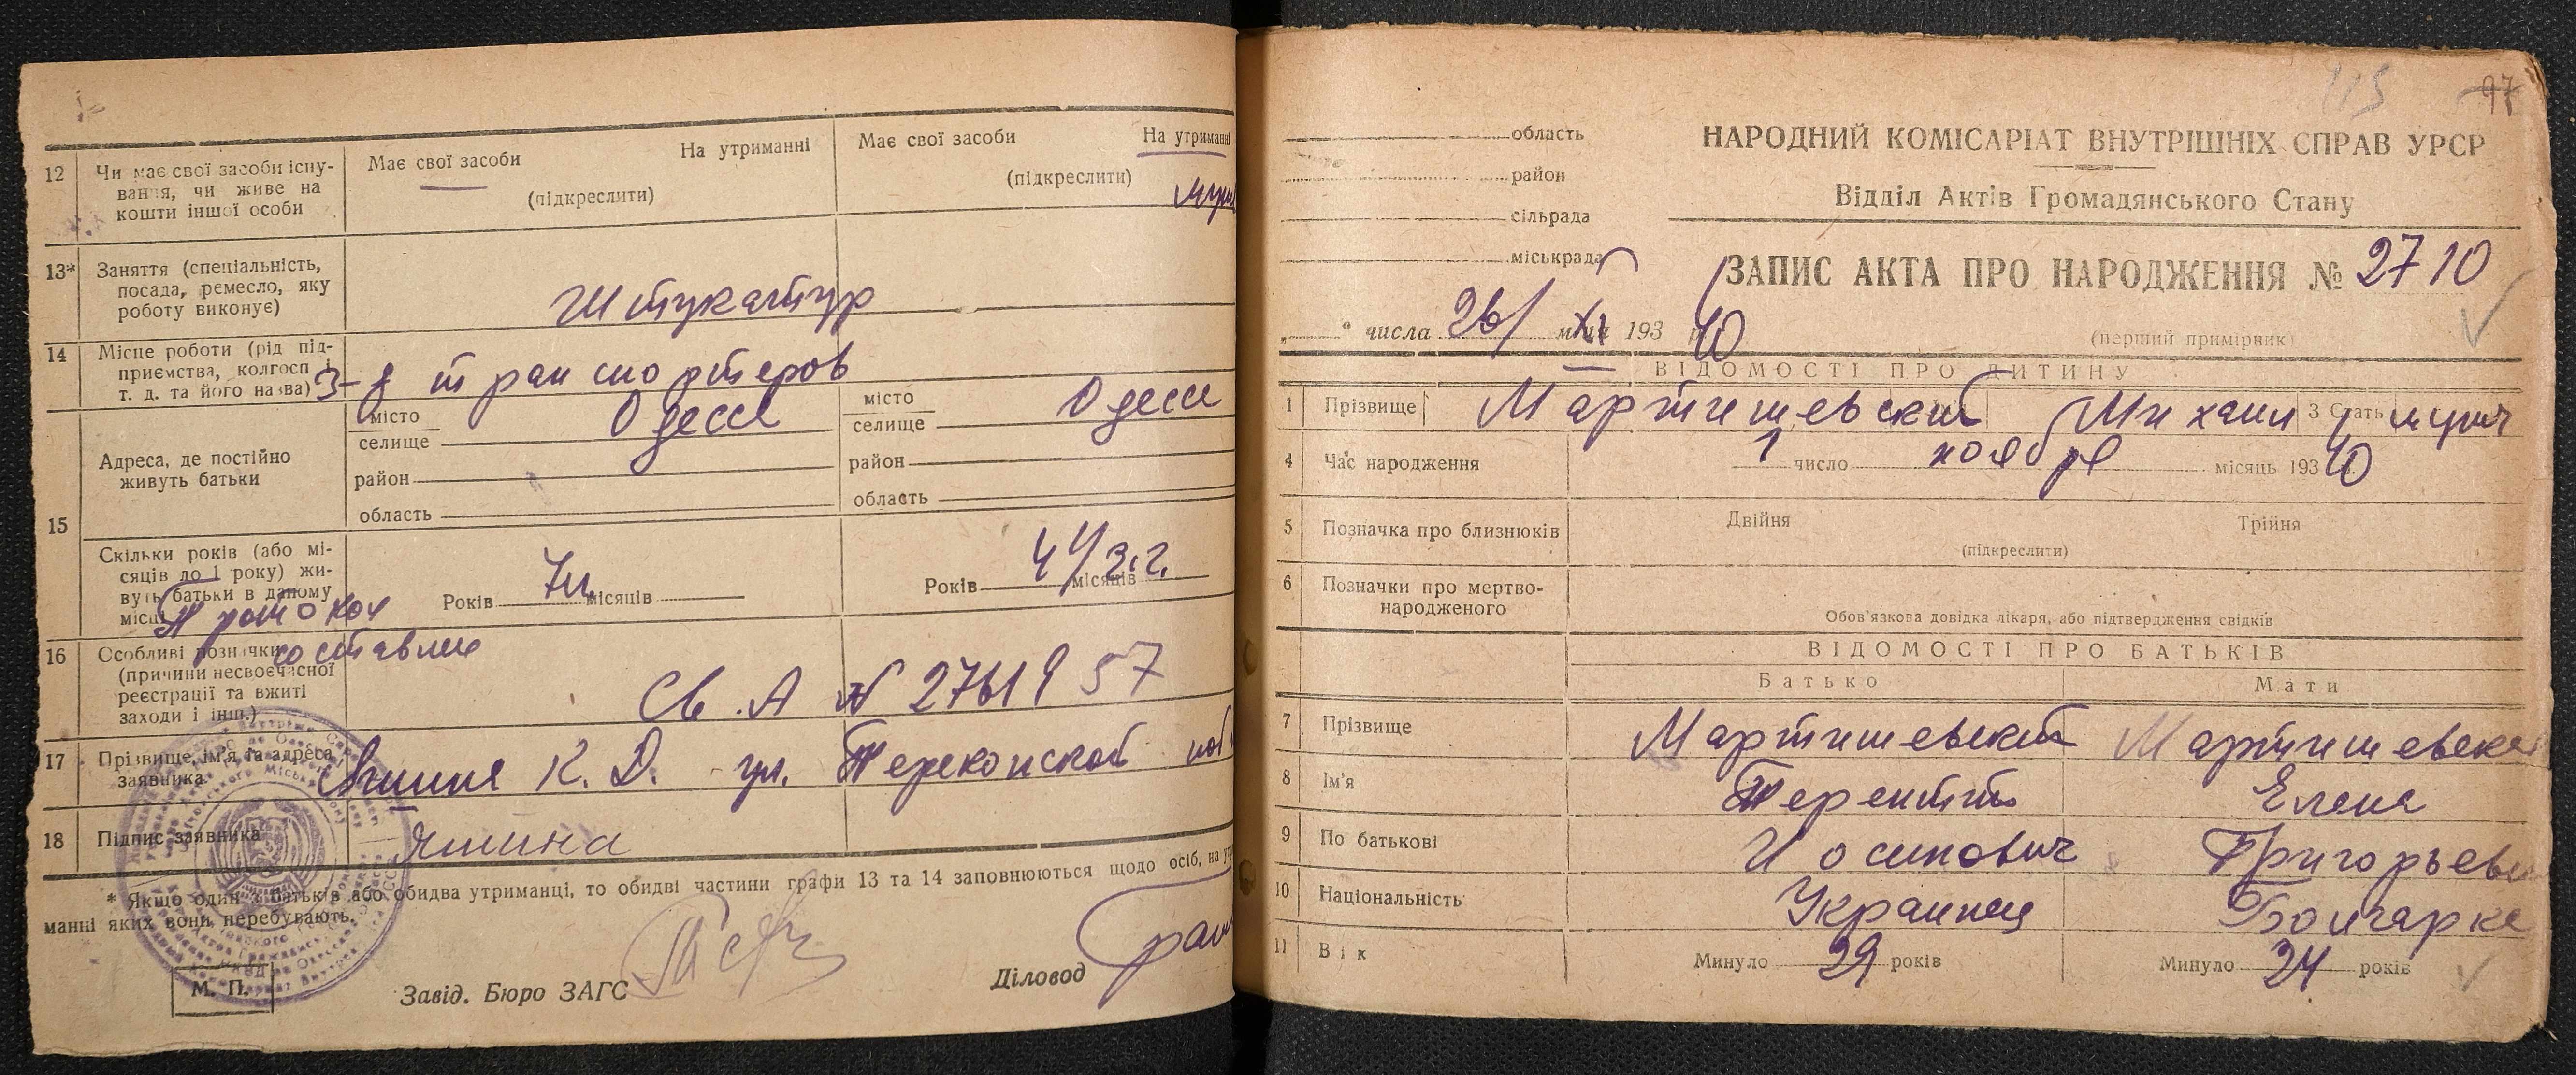 12 Чи має свої засоби існу-
вання, чи живе на
кошти іншої особи
Має свої засоби На утриманні
(підкреслити)
Має свої засоби На утриманні
(підкреслити)
13* Заняття (спеціальність,
посада, ремесло, яку
роботу виконує)
Штукатур
14 Місце роботи (рід під-
приємства, колгосп і
т. д. та його назва)
З-д транспортеров
15 Адреса, де постійно
живуть батьки
місто
селище Одесса
район
область
місто
селище Одесса
район
область
Скільки років (або мі-
сяців до 1 року) жи-
вуть батьки в даному
місці
Років місяців
Років місяців
Протокол
составлен
16 Особливі позначки
(причини несвоєчасної
реєстрації та вжиті
заходи і інш.)
Св. А № 2761957
17 Прізвище, ім'я та адреса
заявника
К. Д. ул. Перекопской
18 Підпис заявника
Яшина
* Якщо один з батьків або обидва утриманці, то обидві частини графи 13 та 14 заповнюються щодо осіб, на ут
манні яких вони перебувають.
М. П.
Завід. Бюро ЗАГС
Діловод
115 97
область
район
сільрада
міськрада
НАРОДНИЙ КОМІСАРІАТ ВНУТРІШНІХ СПРАВ УРСР
Відділ Актів Громадянського Стану
ЗАПИС АКТА ПРО НАРОДЖЕННЯ № 2710
" числа 26/XI м-ця 193 40
(перший примірник)
ВІДОМОСТІ ПРО ДИТИНУ
1 Прізвище Мартишевский Михаил 3 Стать муж
4 Час народження 1 число ноября місяць 193 40
5 Позначка про близнюків Двійня Трійня
(підкреслити)
6 Позначки про мертво-
народженого
Обов'язкова довідка лікаря, або підтвердження свідків
ВІДОМОСТІ ПРО БАТЬКІВ
Батько Мати
7 Прізвище Мартишевский Мартишевская
8 Ім'я Терентий Елена
9 По батькові Иосипович Григорьевн
10 Національність Украинец Болгарка
11 Вік Минуло 29 років Минуло 24 років